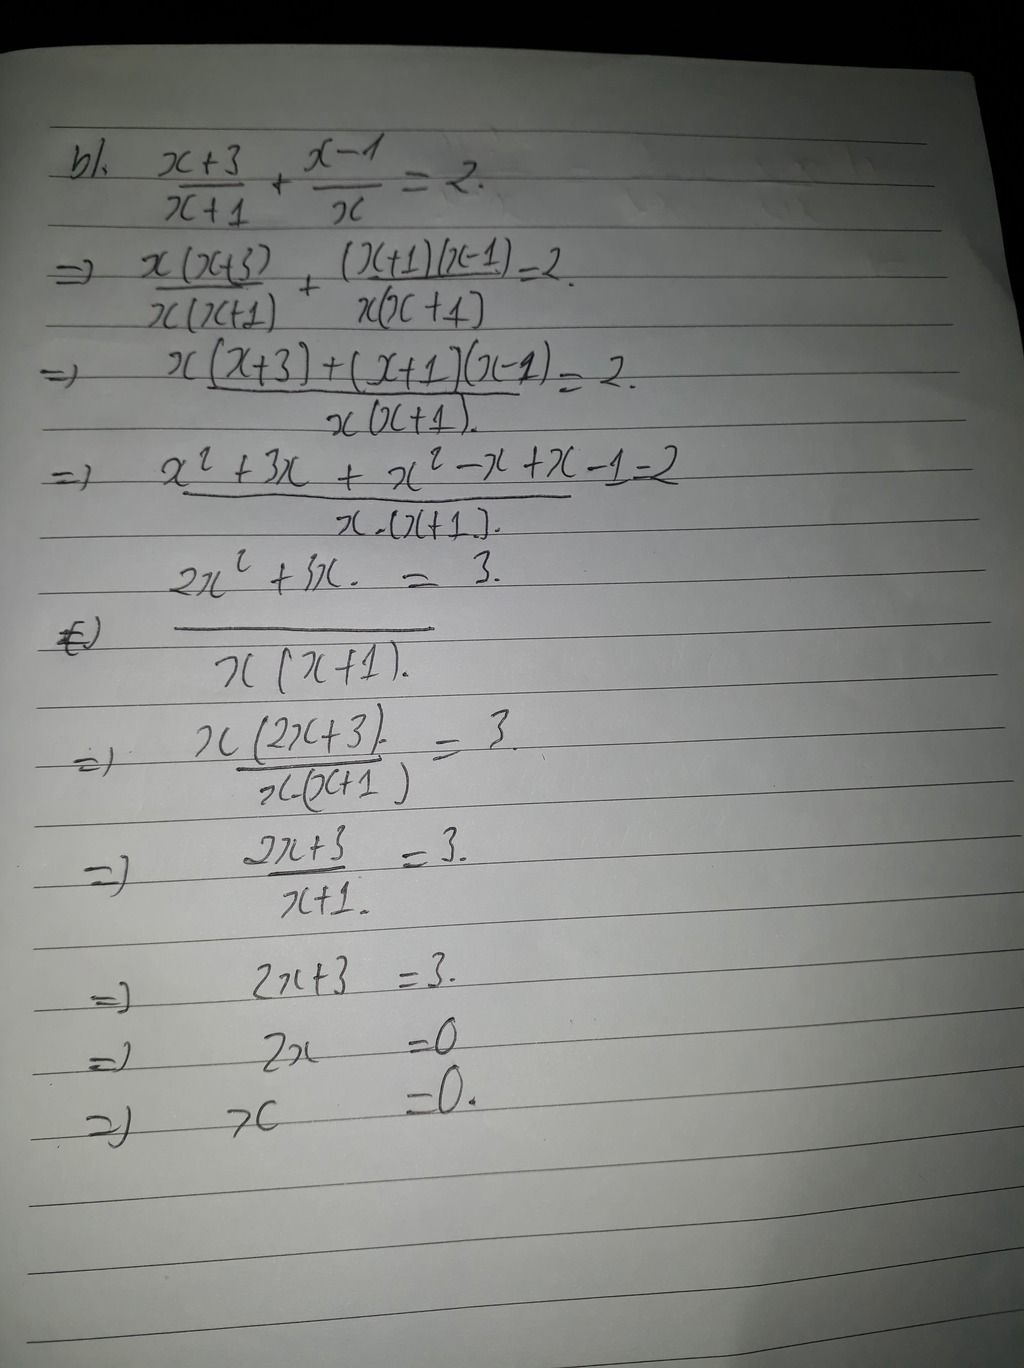 b). (x+3)/(x+1) + (x-1)/x = 2.
=> x(x+3)/x(x+1) + (x+1)(x-1)/x(x+1) = 2.
=> x(x+3)+(x+1)(x-1)/x(x+1). = 2.
=> x² + 3x + x² - x + x - 1 = 2/x.(x+1).
<=> 2x² + 3x./x(x+1). = 3.
=> x(2x+3)./x.(x+1) = 3.
=> 2x+3/x+1. = 3.
=> 2x+3 = 3.
=> 2x = 0
=> x = 0.